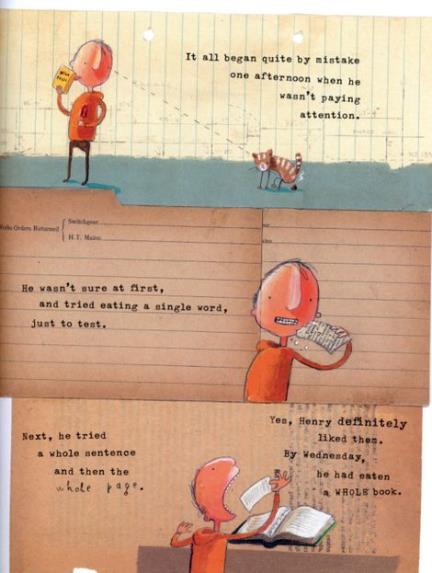 It all began quite by mistake
one afternoon when he
wasn't paying
attention.
Orders Returned
Switchgear
H.T. Mains
He wasn't sure at first,
and tried eating a single word,
just to test.
Next, he tried
a whole sentence
and then the
whole page.
Yes, Henry definitely
liked them.
By Wednesday,
he had eaten
a WHOLE book.